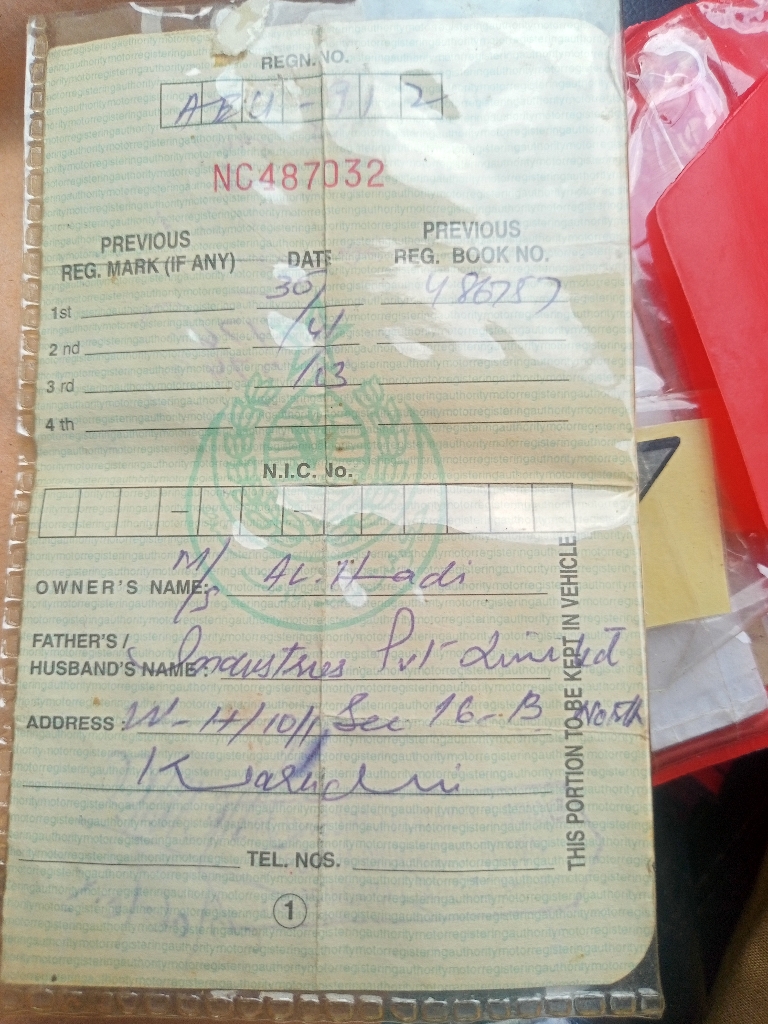 REGN. NO.
AEU-912
NC487032
PREVIOUS REG. MARK (IF ANY) DATE PREVIOUS REG. BOOK NO.
1st 30/ 486757
2 nd
3 rd /13
4 th
N.I.C. No.
OWNER'S NAME: M/S AL-Hadi
FATHER'S / HUSBAND'S NAME: Industries Pvt Limited
ADDRESS: W-14/10/1, Sec 16-B North
Karachi
TEL. NOS.
1
THIS PORTION TO BE KEPT IN VEHICLE